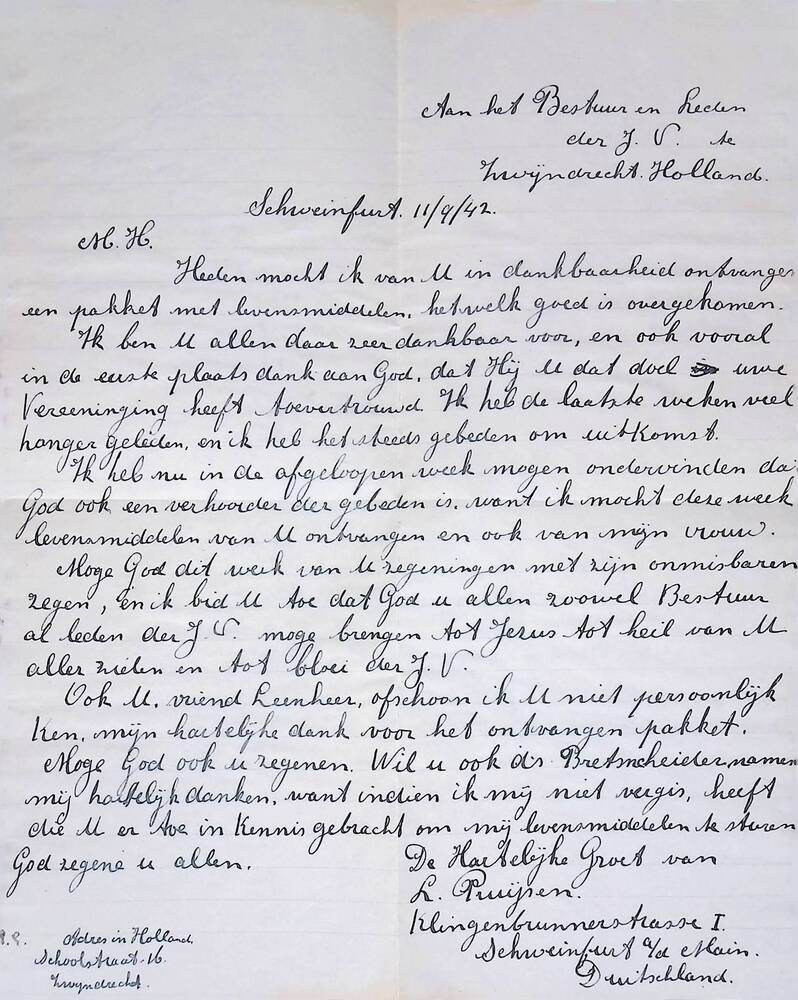 Aan het Bestuur en Leden
der J. V. te
Zwijndrecht. Holland.
Schweinfurt. 11/9/42.
M. H.
Heden mocht ik van U in dankbaarheid ontvangen
een pakket met levensmiddelen, hetwelk goed is overgekomen.
Ik ben U allen daar zeer dankbaar voor, en ook vooral
in de eerste plaats dank aan God, dat Hij U dat doel uwe
Vereeninging heeft toevertrouwd. Ik heb de laatste weken veel
honger geleden, en ik heb het steeds gebeden om uitkomst.
Ik heb nu in de afgeloopen week mogen ondervinden dat
God ook een verhoorder der gebeden is, want ik mocht deze week
levensmiddelen van U ontvangen en ook van mijn vrouw.
Moge God dit werk van U zegeningen met zijn onmisbaren
zegen, en ik bid U toe dat God u allen zoowel Bestuur
al leden der J. V. moge brengen tot Jezus tot heil van U
aller zielen en tot bloei der J. V.
Ook U, vriend Leenheer, ofschoon ik U niet persoonlijk
ken, mijn hartelijke dank voor het ontvangen pakket.
Moge God ook u zegenen. Wil u ook ds Bretscheider, namens
mij hartelijk danken, want indien ik mij niet vergis, heeft
die U er toe in kennis gebracht om mij levensmiddelen te sturen
God zegene u allen.
De Hartelijke Groet van
L. Pruijsen.
Klingenbrunnerstrasse I.
Schweinfurt a/d Main.
Duitschland.
Adres in Holland.
Schoolstraat 16.
Zwijndrecht.